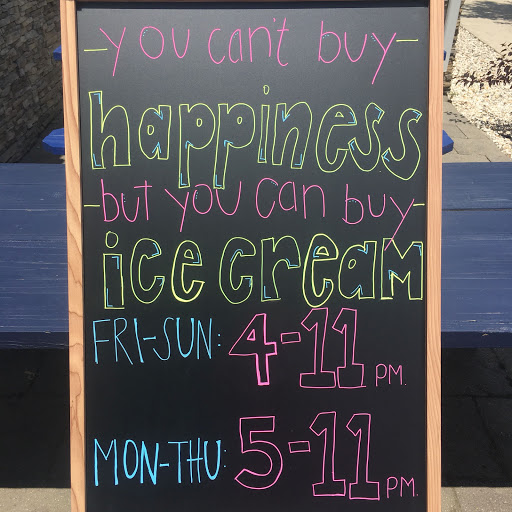 -you can't buy-
happiness
-but you can buy-
ice cream
FRI-SUN: 4-11 PM.
MON-THU: 5-11 PM.